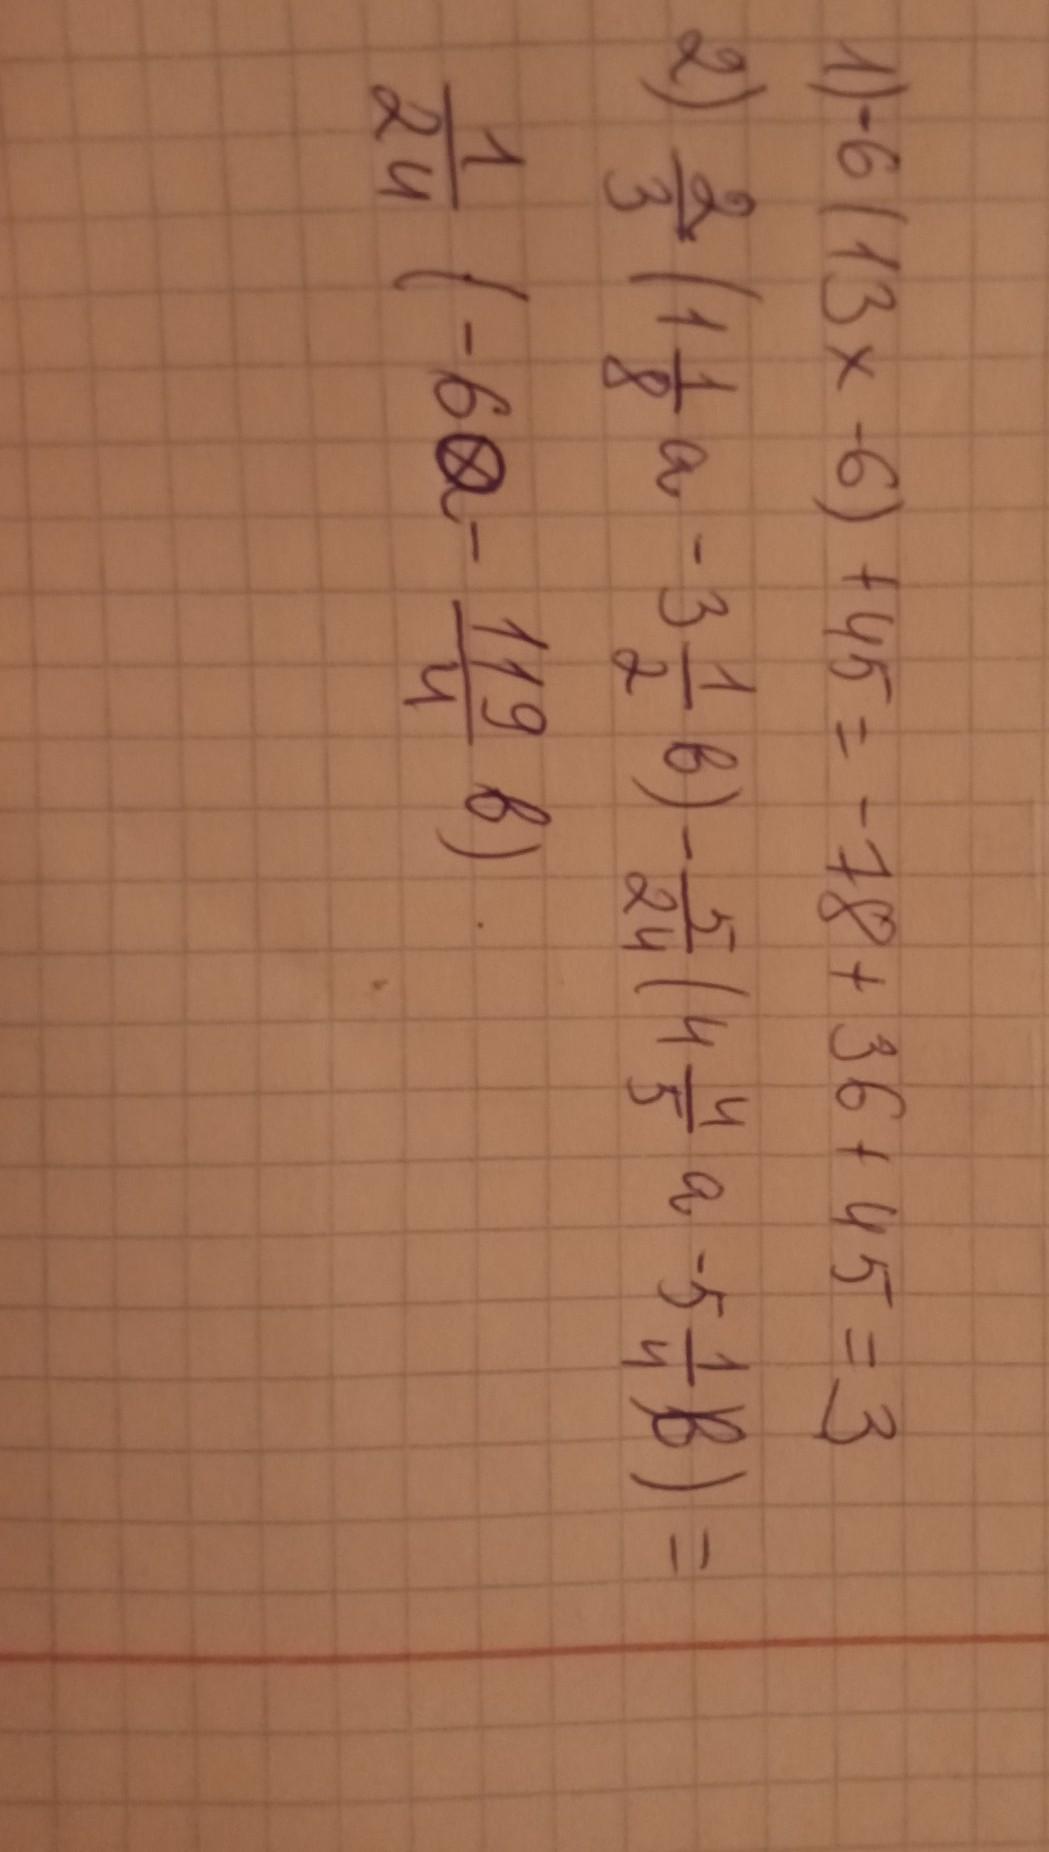 1) -6(13x-6)+45 = -78+36+45=3
2) 2/3 (1 1/8 a - 3 1/2 b) - 5/24 (4 4/5 a - 5 1/4 b) =
1/24 (-6a - 119/4 b)